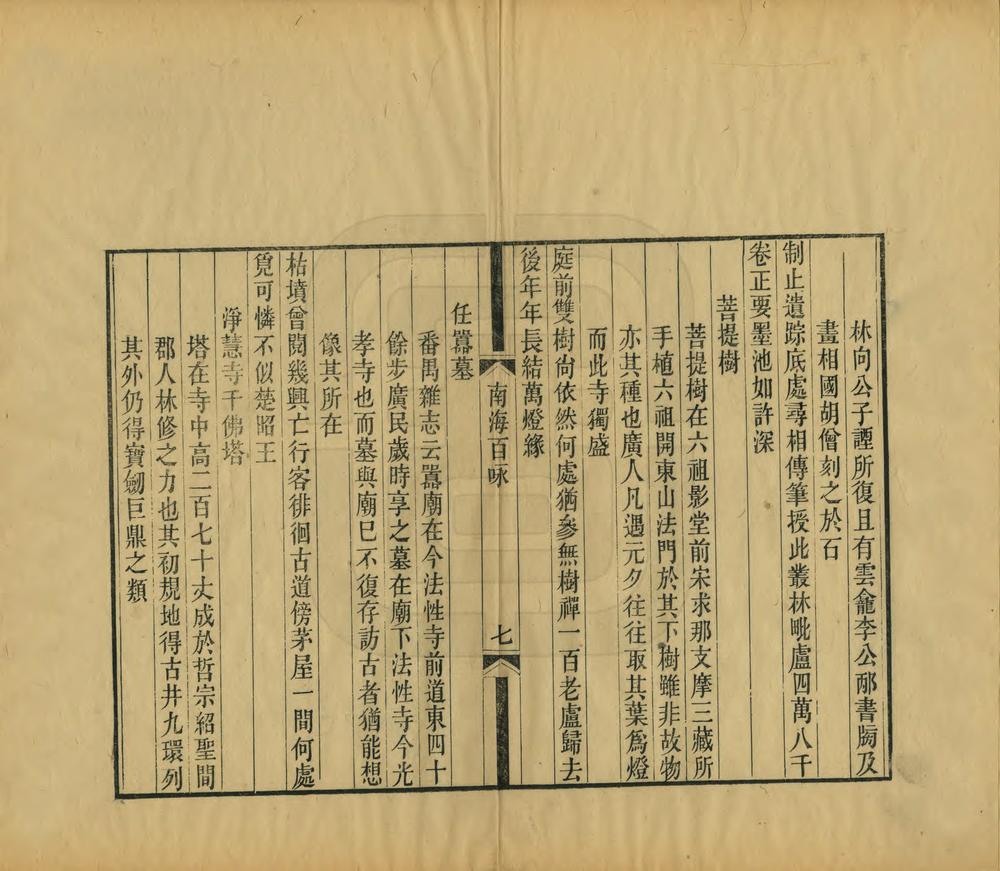 林向公子諲所復且有雲龕李公邴書牓及
畫相國胡僧刻之於石
制止遺踪底處尋相傳筆授此叢林毗盧四萬八千
卷正要墨池如許深
菩提樹
菩提樹在六祖影堂前宋求那支摩三藏所
手植六祖開東山法門於其下樹雖非故物
亦其種也廣人凡遇元夕往往取其葉爲燈
而此寺獨盛
庭前雙樹尙依然何處猶參無樹禪一百老盧歸去
後年年長結萬燈緣
南海百咏
七
任囂墓
番禺雜志云囂廟在今法性寺前道東四十
餘步廣民歲時享之墓在廟下法性寺今光
孝寺也而墓與廟巳不復存訪古者猶能想
像其所在
枯墳曾閱幾興亡行客徘徊古道傍茅屋一間何處
覓可憐不似楚昭王
淨慧寺千佛塔
塔在寺中高二百七十丈成於哲宗紹聖間
郡人林修之力也其初規地得古井九環列
其外仍得寶劒巨鼎之類